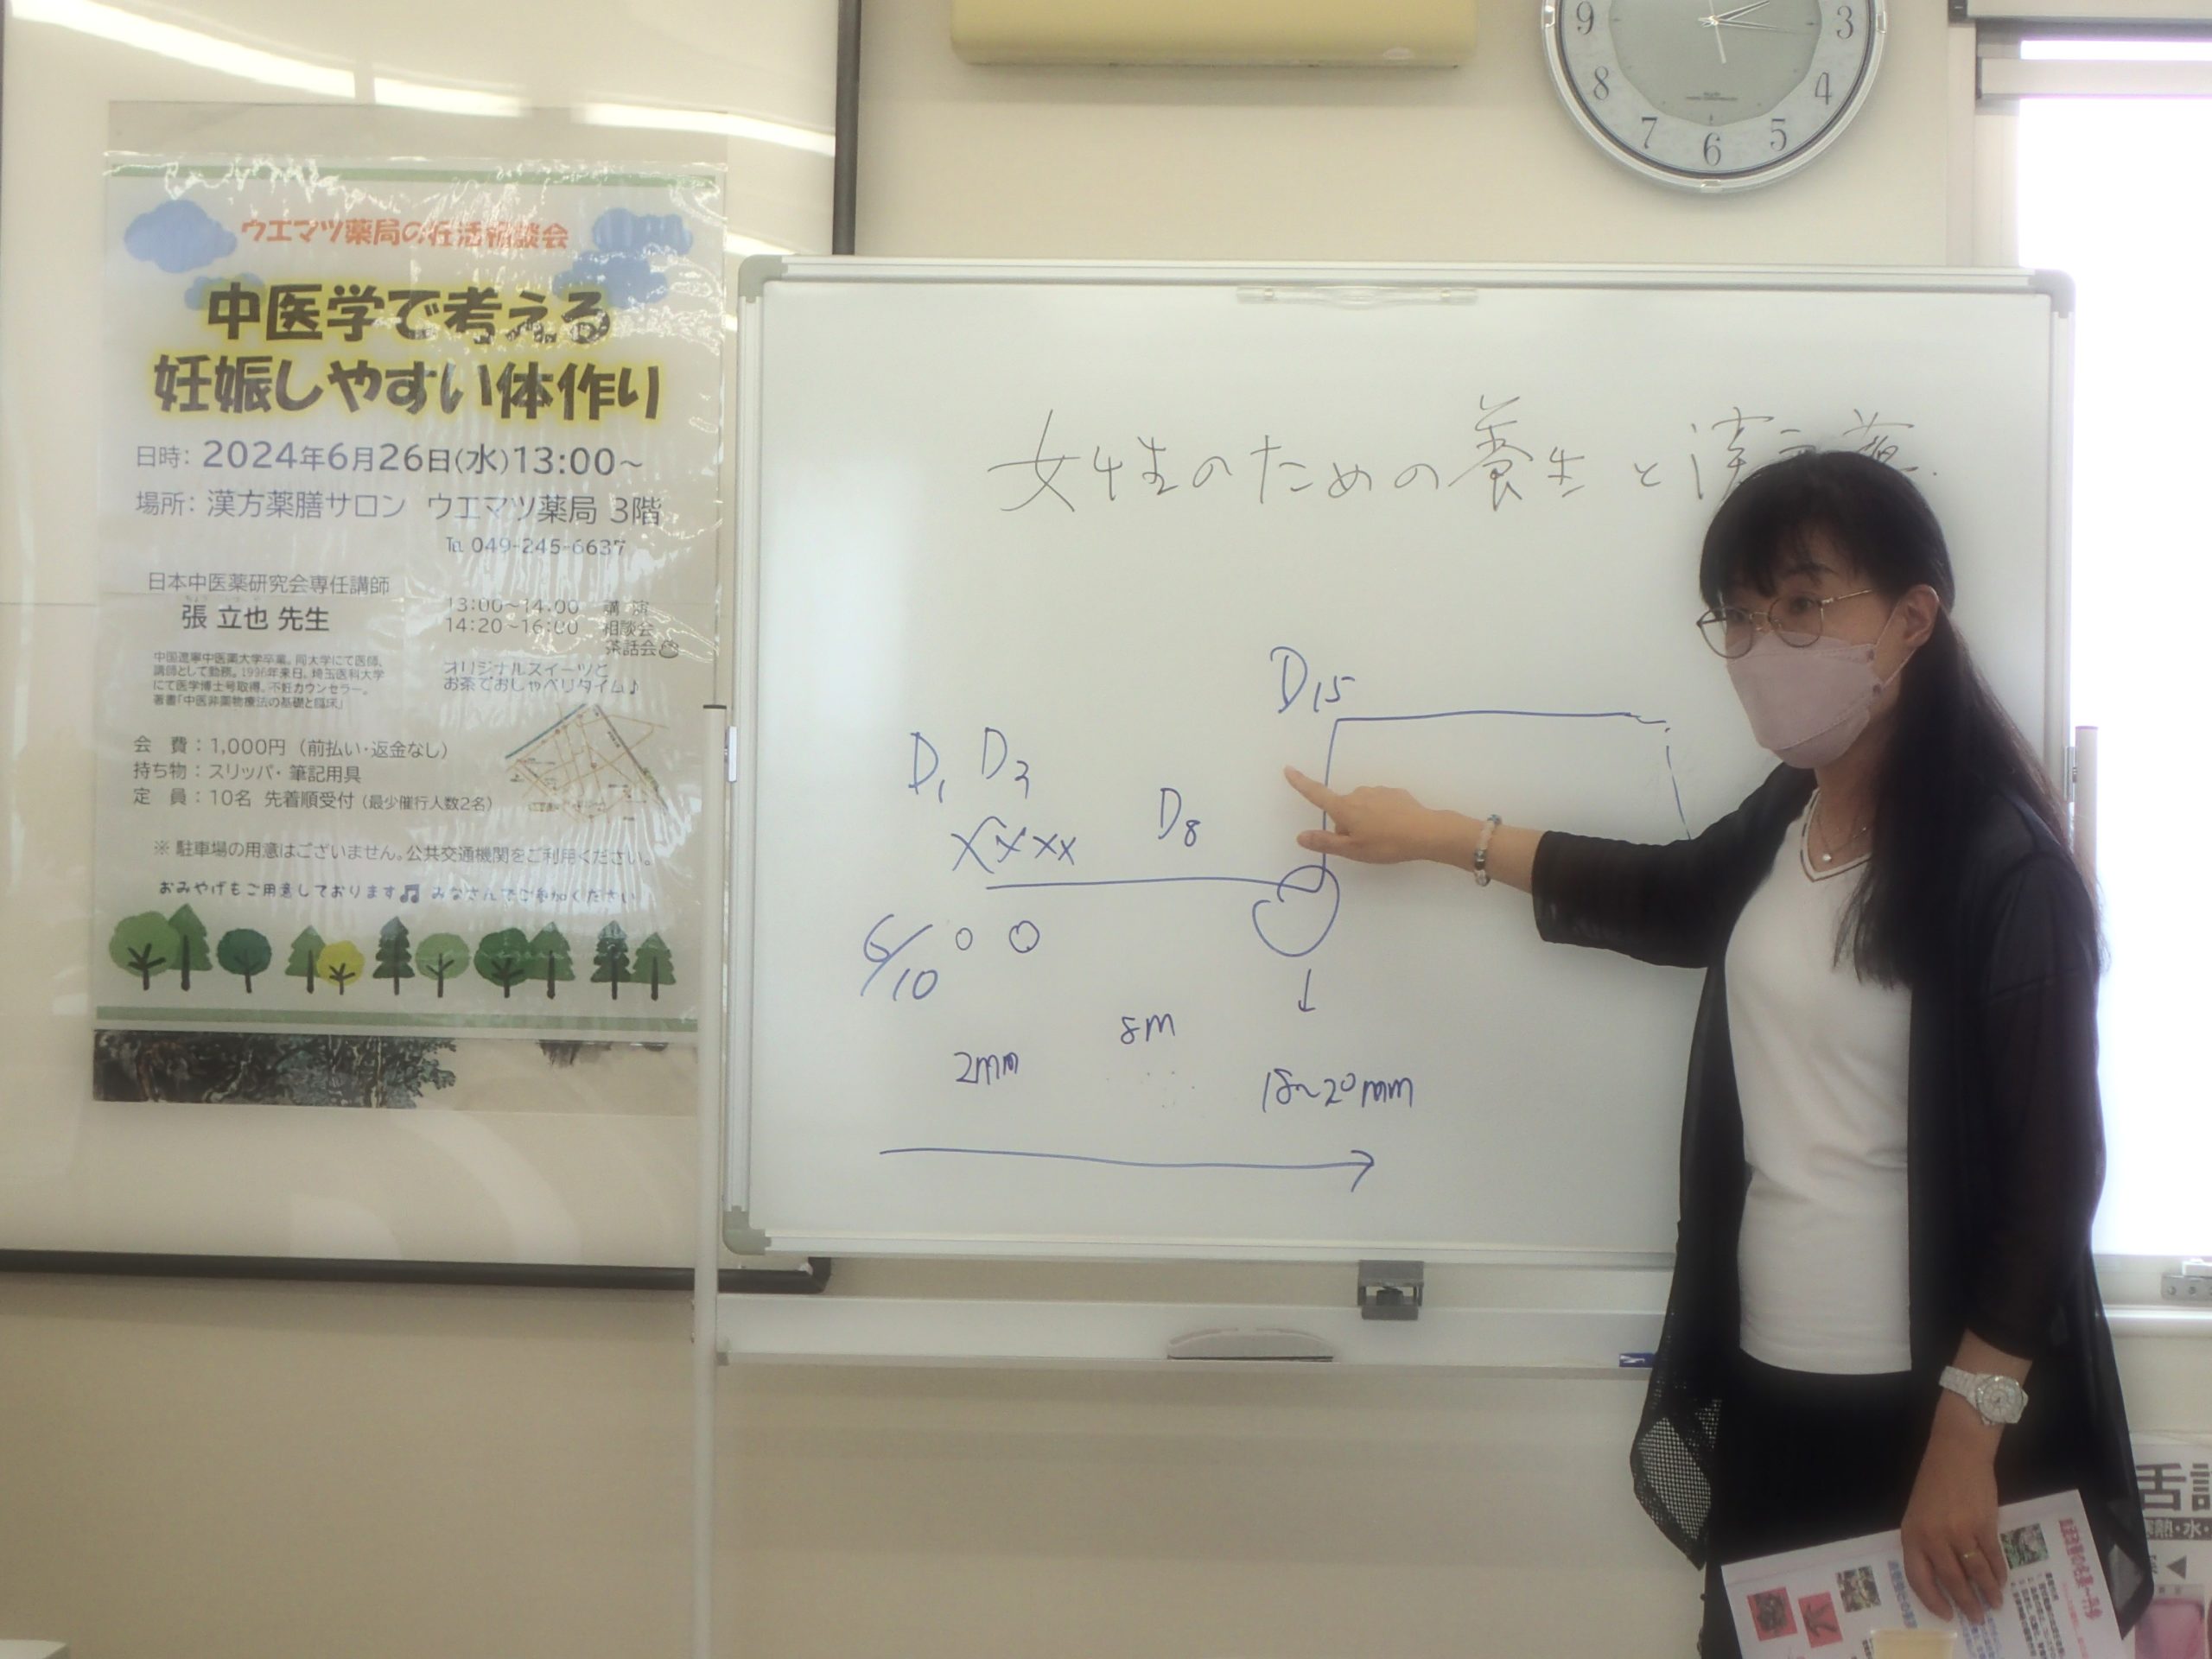 ウエマツ薬局の妊活相談会
中医学で考える
妊娠しやすい体作り
日時: 2024年6月26日(水)13:00~
場所: 漢方薬膳サロン ウエマツ薬局 3階
℡ 049-245-6637
日本中医薬研究会専任講師
張 立也 先生
中国遼寧中医薬大学卒業。同大学にて医師、
講師として勤務。1996年来日、埼玉医科大学
にて医学博士号取得。不妊カウンセラー。
著書「中医非薬物療法の基礎と臨床」
13:00~14:00 講演
14:20~16:00 相談会
茶話会
オリジナルスイーツと
お茶でおしゃべりタイム♪
会 費:1,000円(前払い・返金なし)
持ち物:スリッパ・筆記用具
定 員:10名 先着順受付(最少催行人数2名)
※ 駐車場の用意はございません。公共交通機関をご利用ください。
おみやげもご用意しております♬ みなさんでご参加ください
女性のための養生と漢方薬
D15
D1 D3
D8
xxxx
6/10
8m
2mm
18~20mm
9
3
8
4
7
6
5